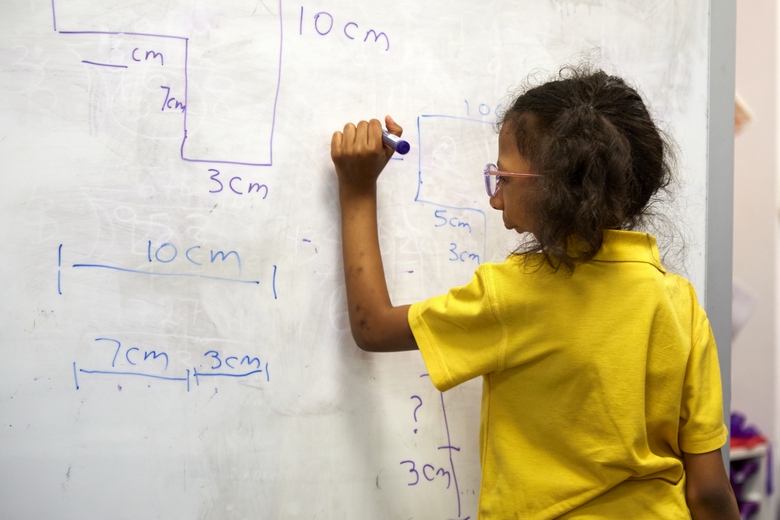 10cm
cm
7cm
3cm
10cm
7cm 3cm
5cm
3cm
?
3cm